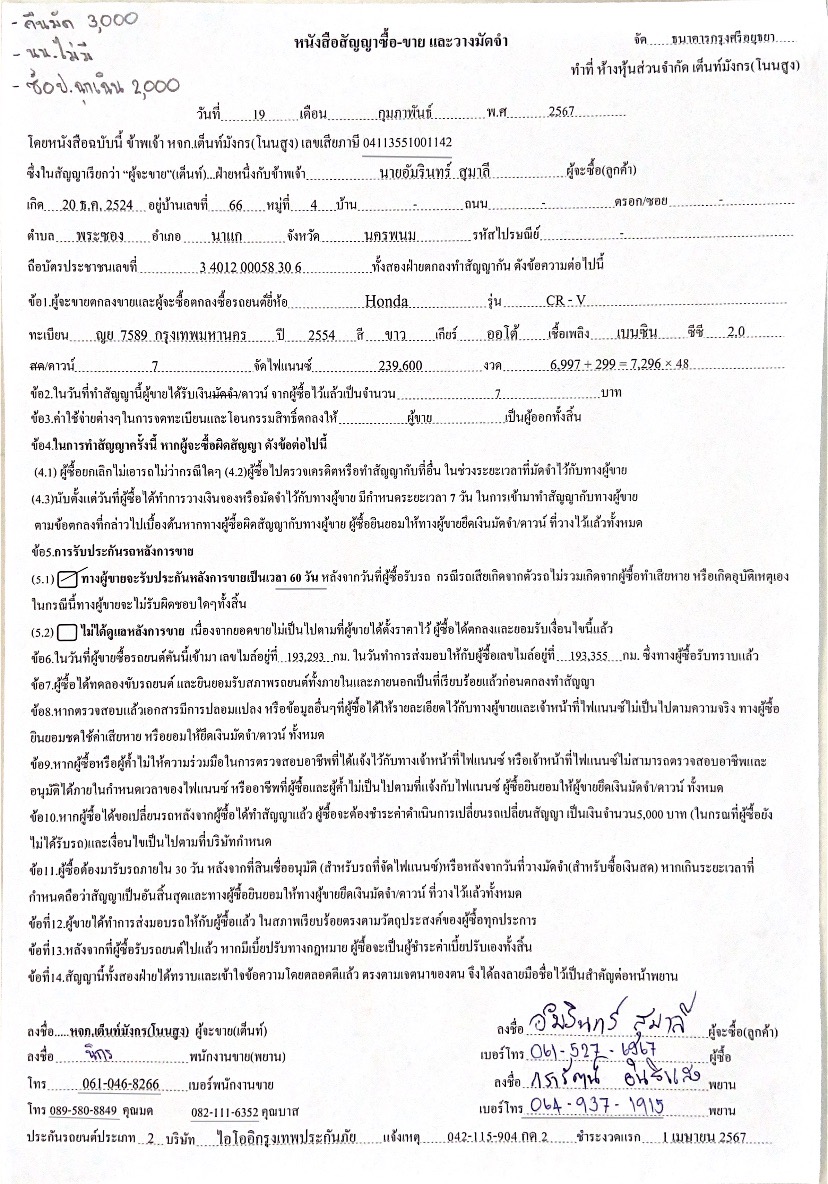 - คืนมัด 3,000
- นน.ไม่มี
- ช้อป.ฉุกเฉิน 2,000
หนังสือสัญญาซื้อ-ขาย และวางมัดจำ
จัด ธนาคารกรุงศรีอยุธยา
ทำที่ ห้างหุ้นส่วนจำกัด เต็นท์มังกร(โนนสูง)
วันที่ 19 เดือน กุมภาพันธ์ พ.ศ 2567
โดยหนังสือฉบับนี้ ข้าพเจ้า หจก.เต็นท์มังกร(โนนสูง) เลขเสียภาษี 04113551001142
ซึ่งในสัญญาเรียกว่า "ผู้จะขาย"(เต็นท์)...ฝ่ายหนึ่งกับข้าพเจ้า นายอัมรินทร์ สุมาลี ผู้จะซื้อ(ลูกค้า)
เกิด 20 ธ.ค. 2524 อยู่บ้านเลขที่ 66 หมู่ที่ 4 บ้าน - ถนน - ตรอก/ซอย -
ตำบล พระซอง อำเภอ นาแก จังหวัด นครพนม รหัสไปรษณีย์ -
ถือบัตรประชาชนเลขที่ 3 4012 00058 30 6 ทั้งสองฝ่ายตกลงทำสัญญากัน ดังข้อความต่อไปนี้
ข้อ1.ผู้จะขายตกลงขายและผู้จะซื้อตกลงซื้อรถยนต์ยี่ห้อ Honda รุ่น CR - V
ทะเบียน ญย 7589 กรุงเทพมหานคร ปี 2554 สี ขาว เกียร์ ออโต้ เชื้อเพลิง เบนซิน ซีซี 2,0
สด/ดาวน์ 7 จัดไฟแนนซ์ 239,600 งวด 6,997 + 299 = 7,296 × 48
ข้อ2.ในวันที่ทำสัญญานี้ผู้ขายได้รับเงินมัดจำ/ดาวน์ จากผู้ซื้อไว้แล้วเป็นจำนวน 7 บาท
ข้อ3.ค่าใช้จ่ายต่างๆในการจดทะเบียนและโอนกรรมสิทธิ์ตกลงให้ ผู้ขาย เป็นผู้ออกทั้งสิ้น
ข้อ4.ในการทำสัญญาครั้งนี้ หากผู้จะซื้อผิดสัญญา ดังข้อต่อไปนี้
(4.1) ผู้ซื้อยกเลิกไม่เอารถไม่ว่ากรณีใดๆ (4.2)ผู้ซื้อไปตรวจเครดิตหรือทำสัญญากับที่อื่น ในช่วงระยะเวลาที่มัดจำไว้กับทางผู้ขาย
(4.3)นับตั้งแต่วันที่ผู้ซื้อได้ทำการวางเงินจองหรือมัดจำไว้กับทางผู้ขาย มีกำหนดระยะเวลา 7 วัน ในการเข้ามาทำสัญญากับทางผู้ขาย
ตามข้อตกลงที่กล่าวไปเบื้องต้นหากทางผู้ซื้อผิดสัญญากับทางผู้ขาย ผู้ซื้อยินยอมให้ทางผู้ขายยึดเงินมัดจำ/ดาวน์ ที่วางไว้แล้วทั้งหมด
ข้อ5.การรับประกันรถหลังการขาย
(5.1) ทางผู้ขายจะรับประกันหลังการขายเป็นเวลา 60 วัน หลังจากวันที่ผู้ซื้อรับรถ กรณีรถเสียเกิดจากตัวรถไม่รวมเกิดจากผู้ซื้อทำเสียหาย หรือเกิดอุบัติเหตุเอง
ในกรณีนี้ทางผู้ขายจะไม่รับผิดชอบใดๆทั้งสิ้น
(5.2) ไม่ได้ดูแลหลังการขาย เนื่องจากยอดขายไม่เป็นไปตามที่ผู้ขายได้ตั้งราคาไว้ ผู้ซื้อได้ตกลงและยอมรับเงื่อนไขนี้แล้ว
ข้อ6.ในวันที่ผู้ขายซื้อรถยนต์คันนี้เข้ามา เลขไมล์อยู่ที่ 193,293 กม. ในวันทำการส่งมอบให้กับผู้ซื้อเลขไมล์อยู่ที่ 193,355 กม. ซึ่งทางผู้ซื้อรับทราบแล้ว
ข้อ7.ผู้ซื้อได้ทดลองขับรถยนต์ และยินยอมรับสภาพรถยนต์ทั้งภายในและภายนอกเป็นที่เรียบร้อยแล้วก่อนตกลงทำสัญญา
ข้อ8.หากตรวจสอบแล้วเอกสารมีการปลอมแปลง หรือข้อมูลอื่นๆที่ผู้ซื้อได้ให้รายละเอียดไว้กับทางผู้ขายและเจ้าหน้าที่ไฟแนนซ์ไม่เป็นไปตามความจริง ทางผู้ซื้อ
ยินยอมชดใช้ค่าเสียหาย หรือยอมให้ยึดเงินมัดจำ/ดาวน์ ทั้งหมด
ข้อ9.หากผู้ซื้อหรือผู้ค้ำไม่ให้ความร่วมมือในการตรวจสอบอาชีพที่ได้แจ้งไว้กับทางเจ้าหน้าที่ไฟแนนซ์ หรือเจ้าหน้าที่ไฟแนนซ์ไม่สามารถตรวจสอบอาชีพและ
อนุมัติได้ภายในกำหนดเวลาของไฟแนนซ์ หรืออาชีพที่ผู้ซื้อและผู้ค้ำไม่เป็นไปตามที่แจ้งกับไฟแนนซ์ ผู้ซื้อยินยอมให้ผู้ขายยึดเงินมัดจำ/ดาวน์ ทั้งหมด
ข้อ10.หากผู้ซื้อได้ขอเปลี่ยนรถหลังจากผู้ซื้อได้ทำสัญญาแล้ว ผู้ซื้อจะต้องชำระค่าดำเนินการเปลี่ยนรถเปลี่ยนสัญญา เป็นเงินจำนวน5,000 บาท (ในกรณที่ผู้ซื้อยัง
ไม่ได้รับรถ)และเงื่อนไขเป็นไปตามที่บริษัทกำหนด
ข้อ11.ผู้ซื้อต้องมารับรถภายใน 30 วัน หลังจากที่สินเชื่ออนุมัติ (สำหรับรถที่จัดไฟแนนซ์)หรือหลังจากวันที่วางมัดจำ(สำหรับซื้อเงินสด) หากเกินระยะเวลาที่
กำหนดถือว่าสัญญาเป็นอันสิ้นสุดและทางผู้ซื้อยินยอมให้ทางผู้ขายยึดเงินมัดจำ/ดาวน์ ที่วางไว้แล้วทั้งหมด
ข้อที่12.ผู้ขายได้ทำการส่งมอบรถให้กับผู้ซื้อแล้ว ในสภาพเรียบร้อยตรงตามวัตถุประสงค์ของผู้ซื้อทุกประการ
ข้อที่13.หลังจากที่ผู้ซื้อรับรถยนต์ไปแล้ว หากมีเบี้ยปรับทางกฎหมาย ผู้ซื้อจะเป็นผู้ชำระค่าเบี้ยปรับเองทั้งสิ้น
ข้อที่14.สัญญานี้ทั้งสองฝ่ายได้ทราบและเข้าใจข้อความโดยตลอดดีแล้ว ตรงตามเจตนาของตน จึงได้ลงลายมือชื่อไว้เป็นสำคัญต่อหน้าพยาน
ลงชื่อ.....หจก.เต็นท์มังกร(โนนสูง) ผู้จะขาย(เต็นท์)
ลงชื่อ อัมรินทร์ สุมาลี ผู้จะซื้อ(ลูกค้า)
ลงชื่อ นิกร พนักงานขาย(พยาน)
เบอร์โทร 061-527-6967 ผู้ซื้อ
โทร 061-046-8266 เบอร์พนักงานขาย
ลงชื่อ พยาน
โทร 089-580-8849 คุณมด 082-111-6352 คุณบาส
เบอร์โทร 064-937-1915 พยาน
ประกันรถยนต์ประเภท 2 บริษัท ไอโออิกรุงเทพประกันภัย แจ้งเหตุ 042-115-904 กด 2 ชำระงวดแรก 1 เมษายน 2567